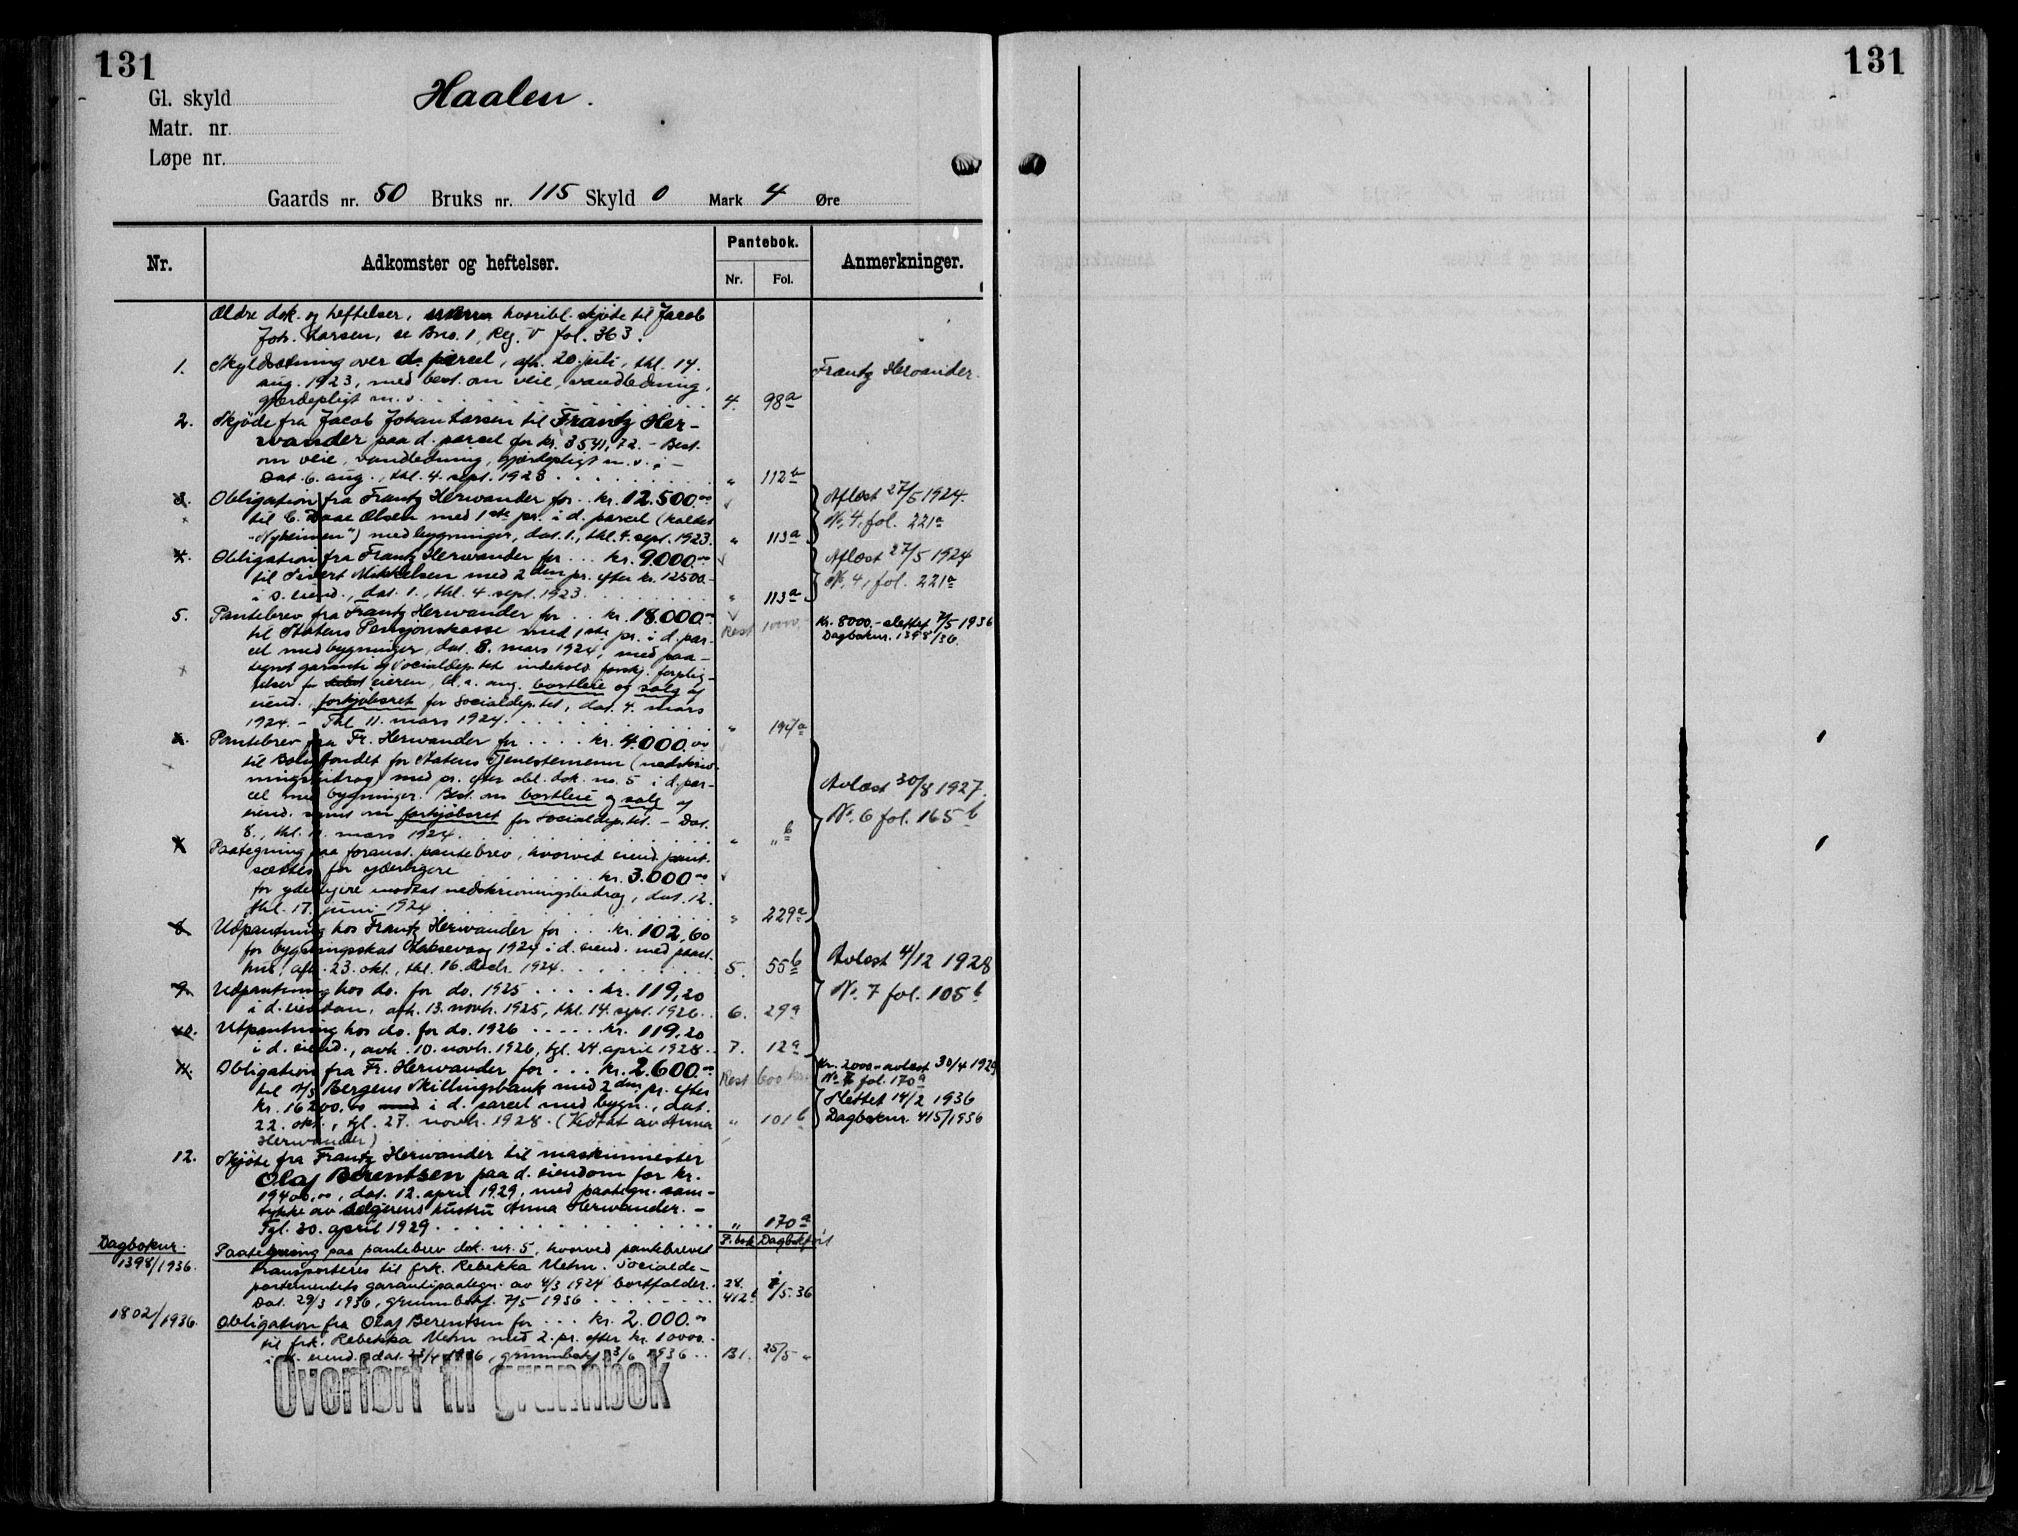 131
131
Haalen.
Gl. skyld
Matr. nr.
Løpe nr.
Gaards nr. 50 Bruks nr. 115 Skyld 0 Mark 4 Øre
Nr. Adkomster og heftelser. Pantebok. Anmerkninger.
Nr. Fol.
Ældre dok. og heftelser, hvoribl. skjøte til Jacob
Joh. Larsen, se Bno. 1, Reg. V fol. 363.
1. Skyldsætning over d. parcel, afh. 20. juli, thl. 14. Frantz Herwander.
aug. 1923, med best. om veie, vandledning,
gjærdepligt m. v. 4. 98a
2. Skjøde fra Jacob Johan Larsen til Frantz Her-
wander paa d. parcel for kr. 3541,72. - Best.
om veie, vandledning, gjærdepligt m. v. -
Dat. 6. aug., thl. 4. sept. 1923 " 112b
3. Obligation fra Frantz Herwander for kr. 12.500.00 Aflæst 27/5 1924.
til C. Daae Olsen med 1ste pr. i d. parcel (kaldet No. 4, fol. 221a
"Nyheimen") med bygninger, dat. 1., thl. 4. sept. 1923. " 113a
4. Obligation fra Frantz Herwander for ... kr. 9000.00 Aflæst 27/5 1924
til Sivert Mikkelsen med 2den pr. efter kr. 12500.- No. 4, fol. 221a
i s. eiend., dat. 1., thl. 4. sept. 1923. " 113a
5. Pantebrev fra Frantz Herwander for .. kr. 18.000.00 Rest 10000.- Kr. 8000.- slettet 7/5 1936
til Statens Pensjonskasse med 1ste pr. i d. par- Dagboknr. 1398/36.
cel med bygninger, dat. 8. mars 1924, med paa-
tegnet garanti af Socialdep.tet indehold. forskj. forplig-
telser for eieren, bl. a. ang. bortleie og salg af
eiend., forkjøbsret for Socialdep.tet, dat. 4. mars
1924. - Thl. 11. mars 1924. " 197a
6. Pantebrev fra Fr. Herwander for .... kr. 4.000.00
til Boligfondet for Statens Tjenestemenn (nedskriv-
ningsbidrag) med pr. efter obl. dok. no. 5 i d. par-
cel med bygninger. Best. om bortleie og salg af Avlæst 30/8 1927.
eiend. samt om forkjøbsret for Socialdep.tet. - Dat. No. 6 fol. 165b
8., thl. 11. mars 1924. " " b
7. Paategning paa foranst. pantebrev, hvorved eiend. pant-
sættes for yderligere kr. 3.000.00
for yderligere nedskrivningsbidrag, dat. 12.
thl. 17. juni 1924 " 229a
8. Udpantning hos Frantz Herwander for ... kr. 102,60
for bygningsskat Laksevaag 1924 i d. eiend. med paast. Avlæst 4/12 1928
hus, afh. 23. okt., thl. 16. decbr. 1924. 5. 55b
9. Udpantning hos do. for do. 1925 .... kr. 119,20 No. 7 fol. 105b
i d. eiendom, afh. 13. novbr. 1925, thl. 14. sept. 1926. 6. 29a
10. Utpantning hos do. for do. 1926 ..... kr. 119,20
i d. eiend., avh. 10. novbr. 1926, tgl. 24. april 1928. 7. 12a
11. Obligation fra Fr. Herwander for ... kr. 2.600.00 Rest 600 kr. Kr. 2000.- avlæst 30/4 1929
til A/S Bergens Skillingsbank med 2den pr. efter No. 7 fol. 170a
kr. 16200.00 i d. parcel med bygn., dat. Slettet 14/2 1936
22. okt., tgl. 27. novbr. 1928. (Vedtat av Anna " 101b Dagboknr. 415/1936
Herwander)
12. Skjøte fra Frantz Herwander til maskinmester
Olaf Berentsen paa d. eiendom for kr.
19400.00, dat. 12. april 1929, med paategn. sam-
tykke av selgerens hustru Anna Herwander. -
Tgl. 30. april 1929 " 170a
P. bok Dagbokført
Dagboknr. 1398/1936. Paategning paa pantebrev dok. nr. 5, hvorved pantebrevet
transporteres til frk. Rebekka Mehn. Socialde-
partementets garantipaategn. av 4/3 1924 bortfalder. 28.
Dat. 29/3 1936, grunnbokf. 7/5 1936 412b 7/5.36
1802/1936. Obligation fra Olaf Berentsen for ... kr. 2.000.00
til frk. Rebekka Mehn med 2. pr. efter kr. 10000.-
i d. eiend., dat. 23/4 1936, grunnbokf. 3/6 1936 .. B1. 25/5 "
Overført til grunnbok